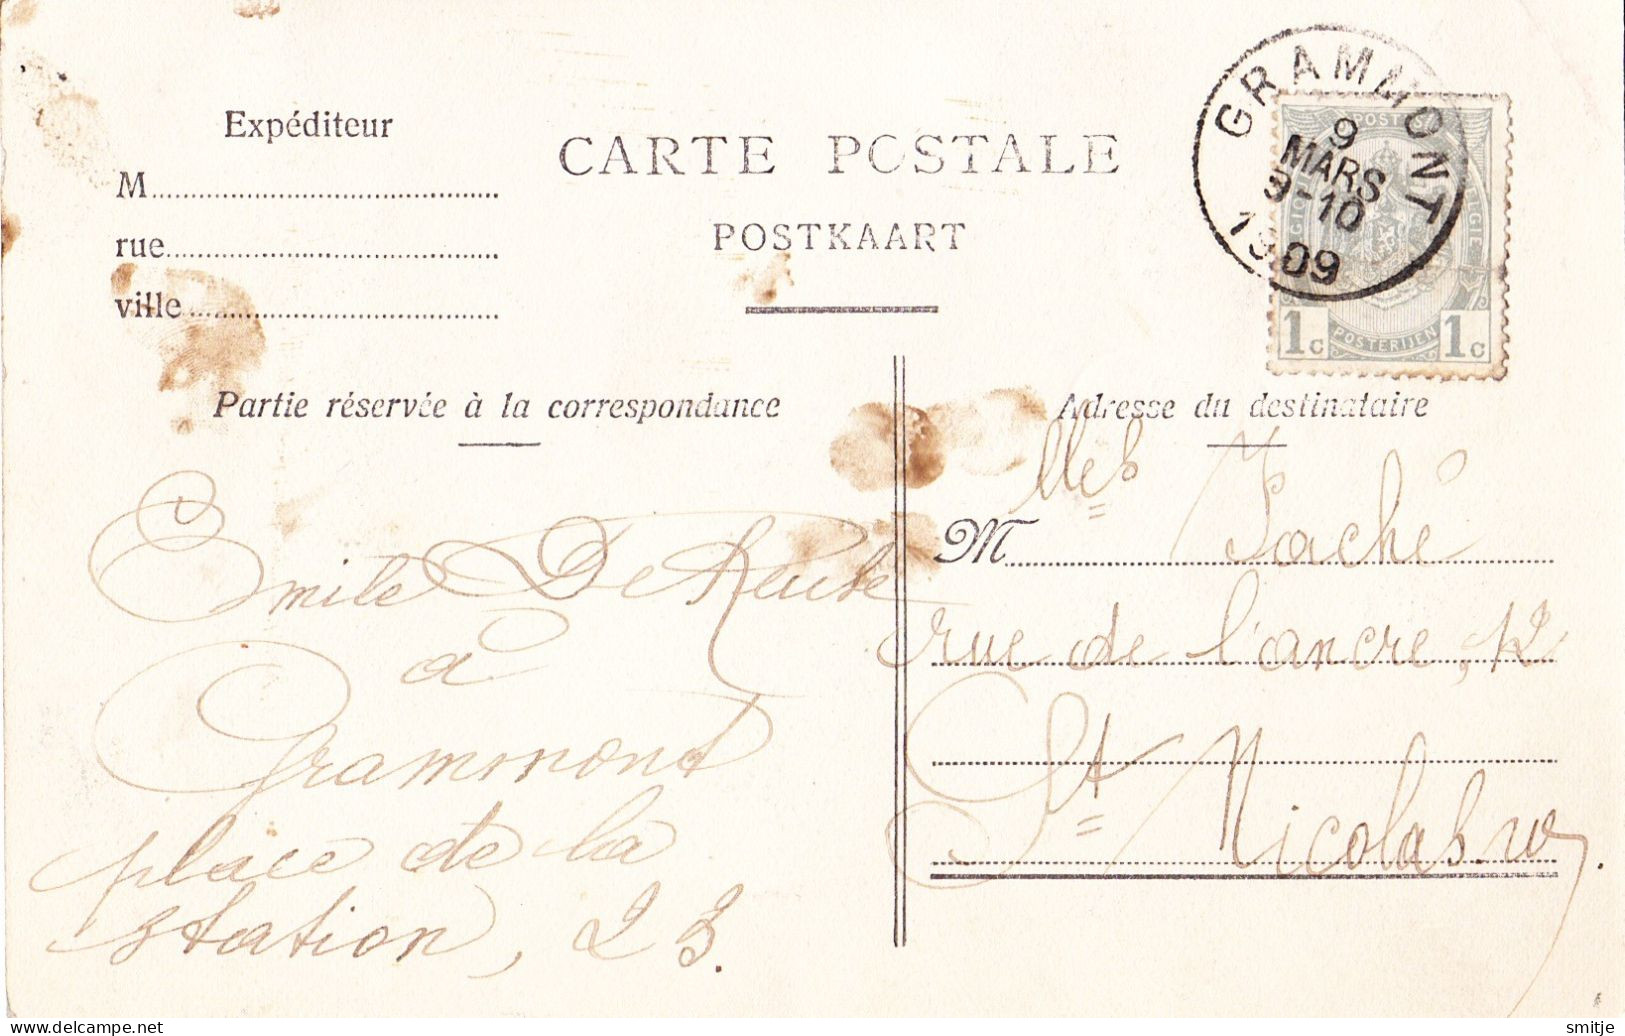 Expéditeur
M
rue
ville
CARTE POSTALE
POSTKAART
GRAMMONT
9
MARS
9-10
1909
POSTES
BELGIE
1c POSTERIJEN 1c
Partie réservée à la correspondance
Adresse du destinataire
Emile De
à
Grammont
place de la
station, 23.
Mlles
M Taché
rue de l'ancre, 12
St Nicolas
delcampe.net
smitje